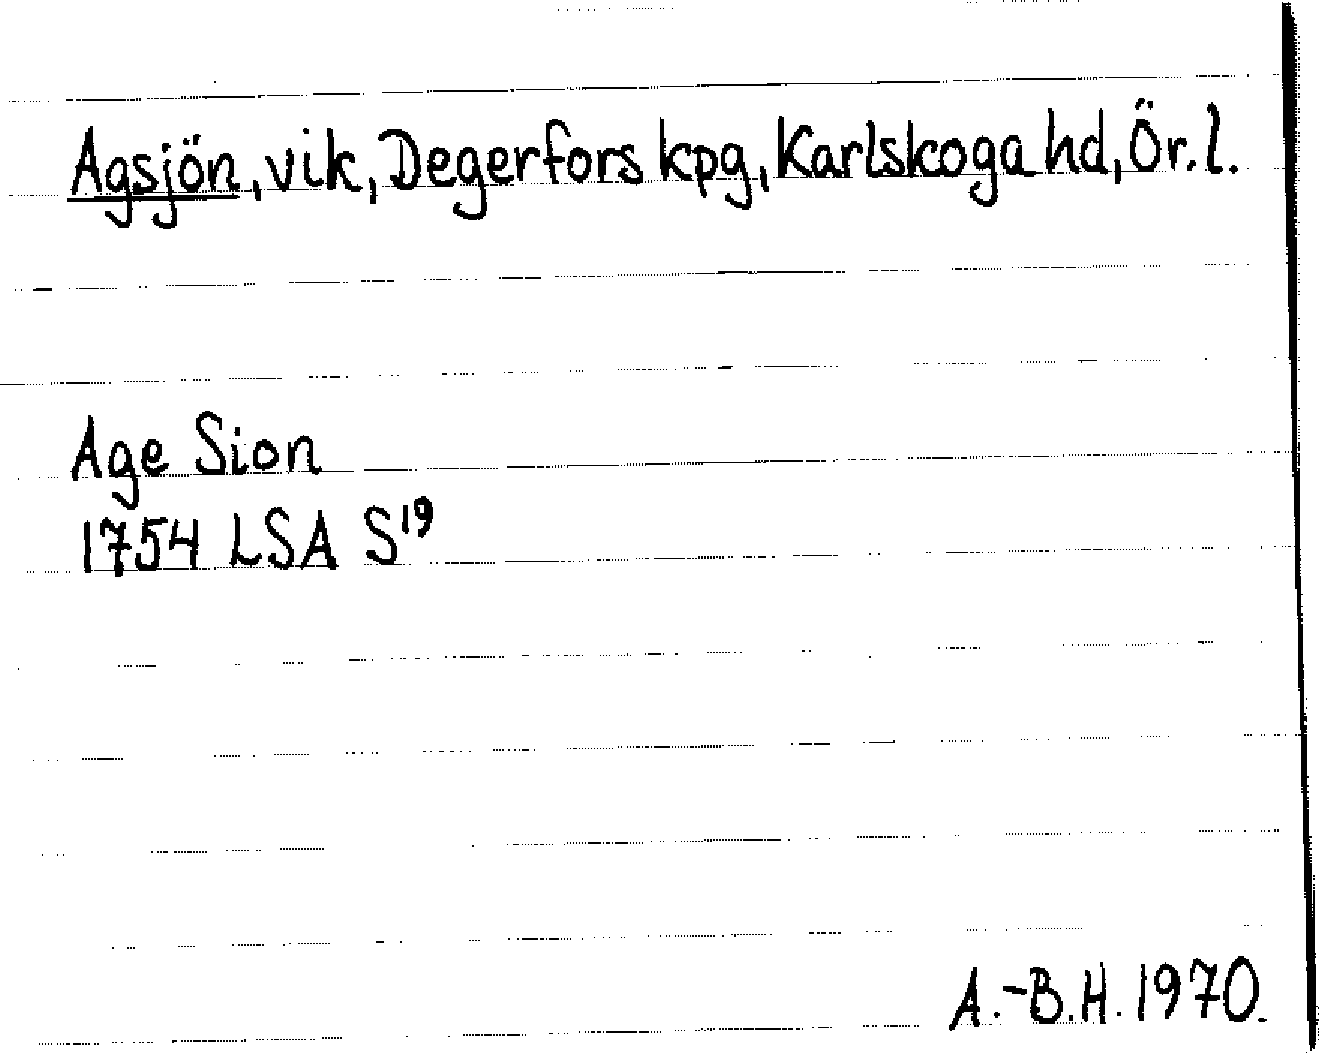 Agsjön, vik, Degerfors kpg, Karlskoga hd, Ör. l.
Age Sion
1754 LSA S¹⁹
A.-B.H. 1970.